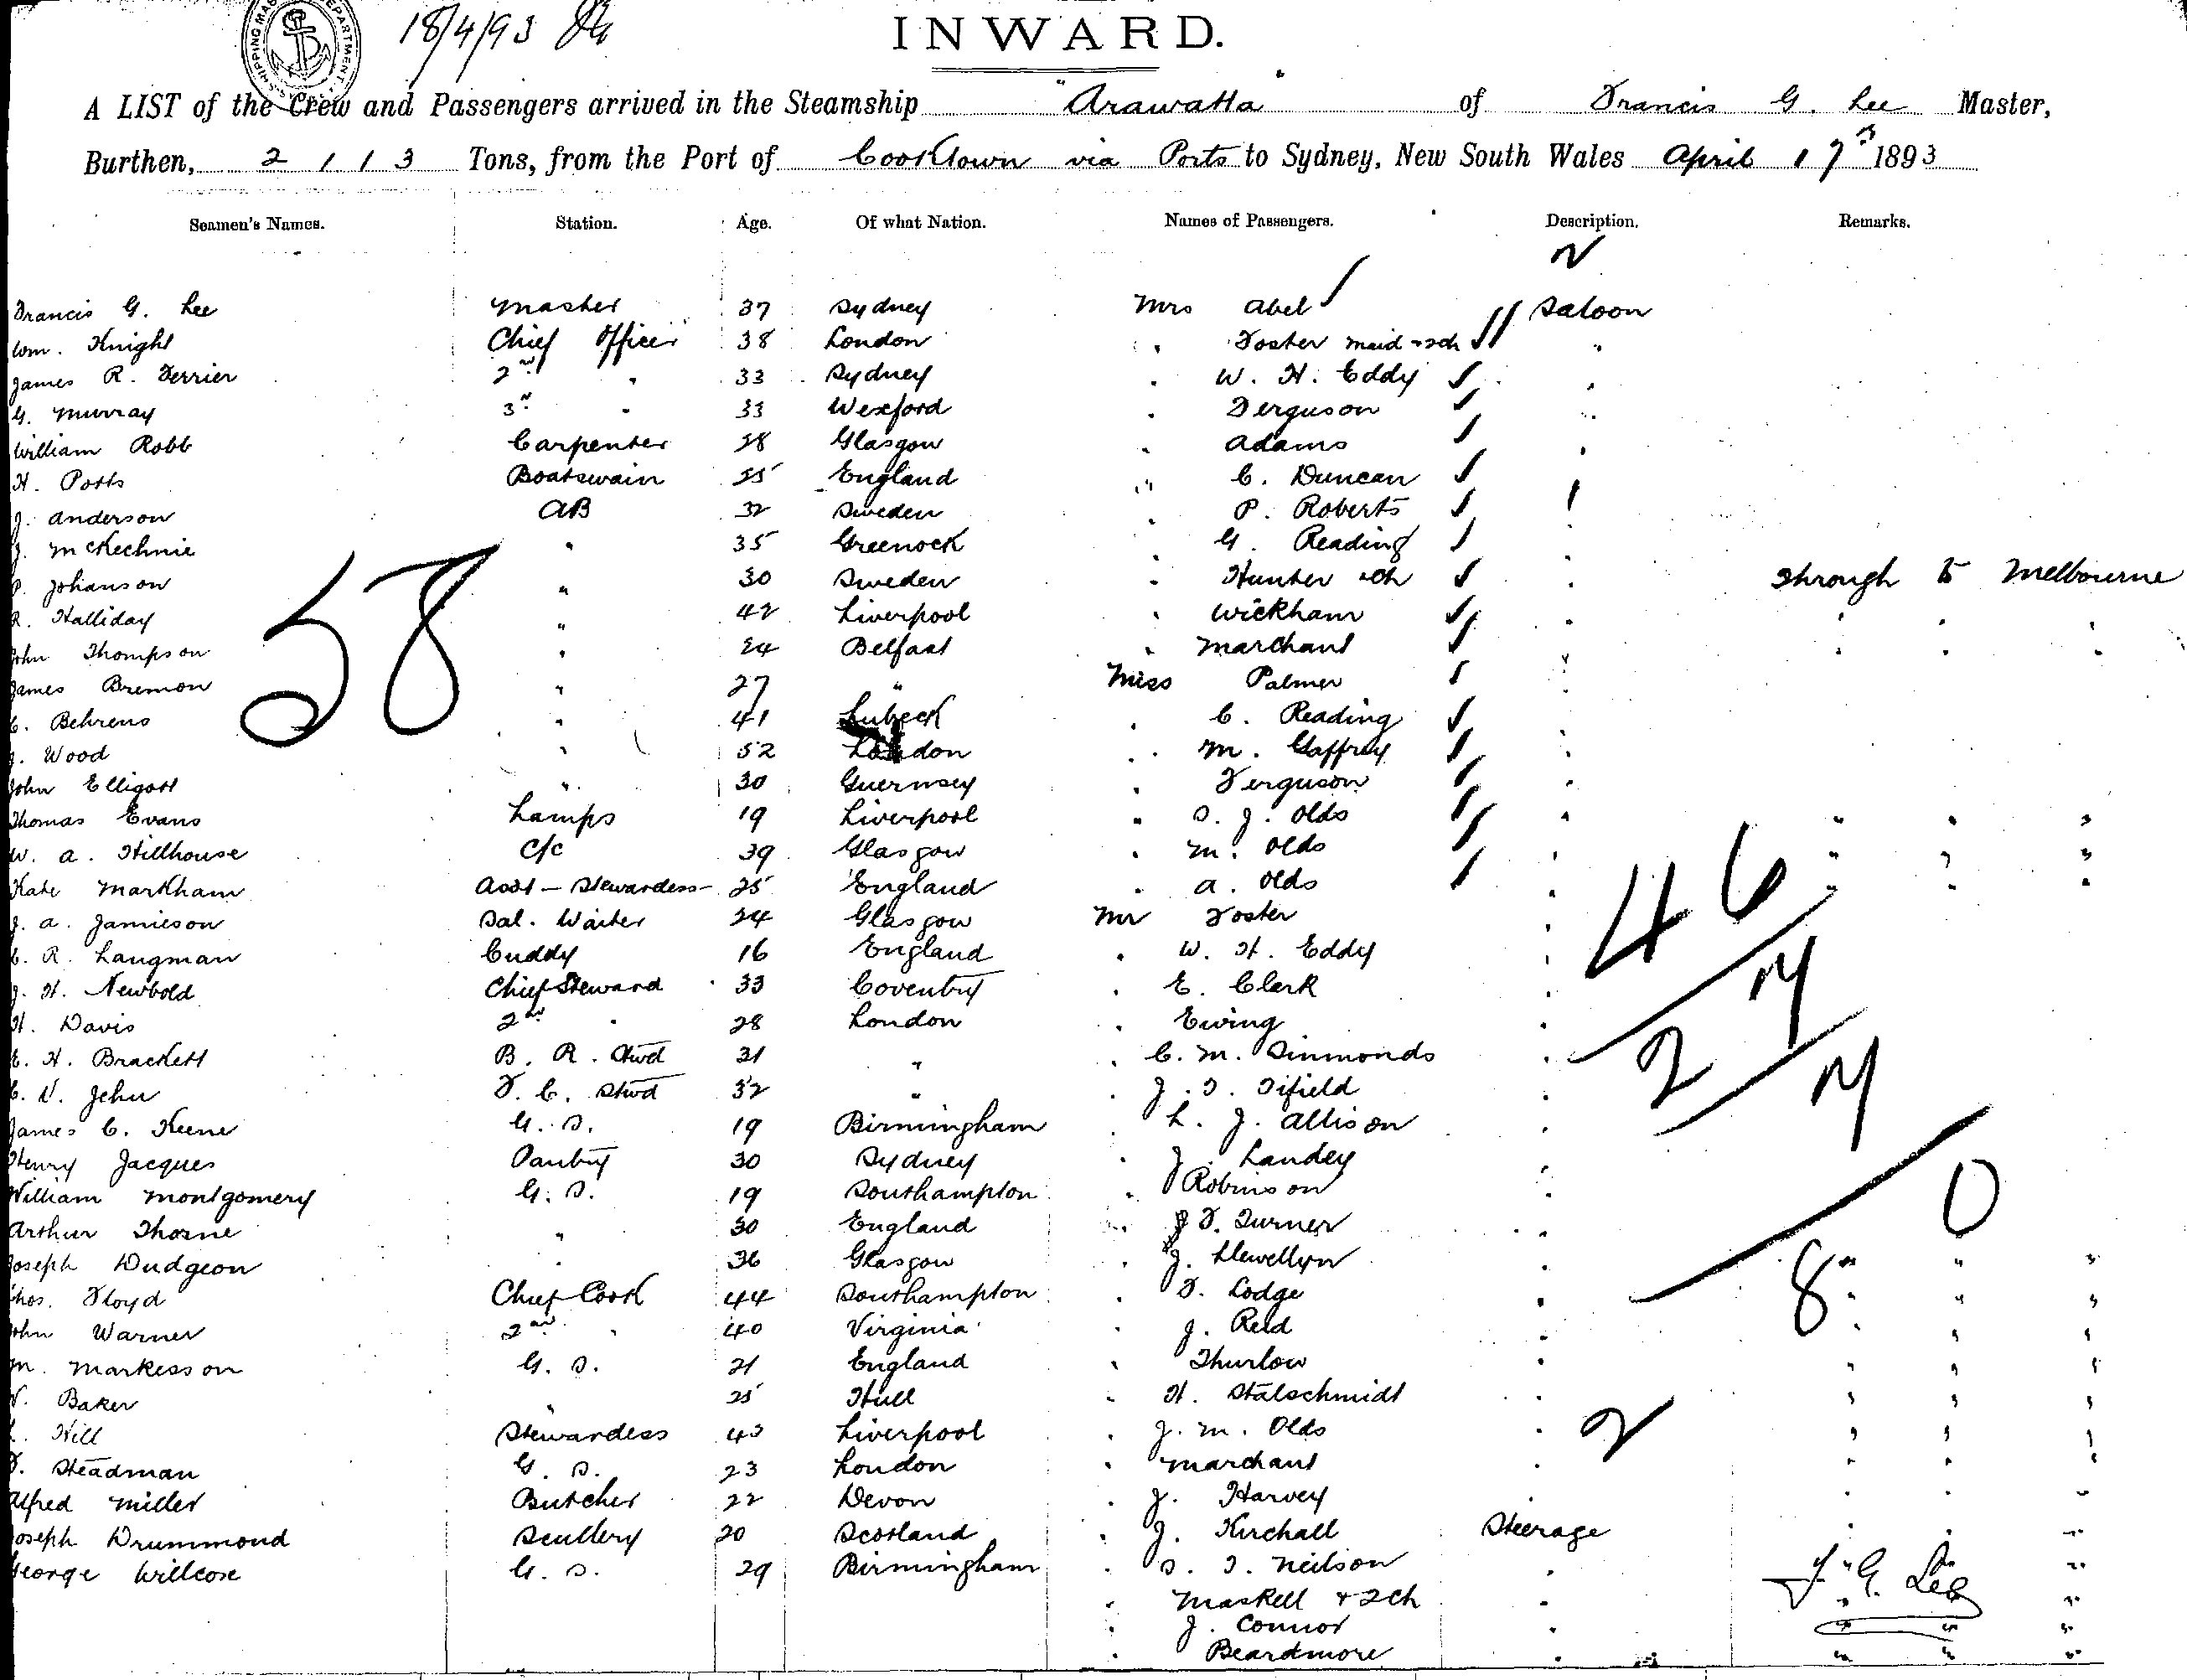 SHIPPING MAS DEPARTMENT
18/4/93
INWARD.
A LIST of the Crew and Passengers arrived in the Steamship "Arawatta" of Francis G. Lee Master,
Burthen, 2113 Tons, from the Port of Cooktown via Ports to Sydney, New South Wales April 17th 1893
Seamen's Names. Station. Age. Of what Nation. Names of Passengers. Description. Remarks.
Francis G. Lee Master 37 Sydney Mrs Abel Saloon
Wm. Knight Chief Officer 38 London " Foster maid + ch "
James R. Ferrier 2nd " 33 Sydney " W. H. Eddy "
G. Murray 3rd " 33 Wexford " Ferguson "
William Robb Carpenter 28 Glasgow " Adams "
H. Potts Boatswain England " C. Duncan "
J. Anderson AB 32 Sweden " P. Roberts "
J. McKechnie " 35 Greenock " G. Reading "
P. Johanson " 30 Sweden " Hunter + ch " Through to Melbourne
R. Halliday " 42 Liverpool " Wickham " " " "
John Thompson " 24 Belfast " Marchant " " " "
James Bremon " 27 " Miss Palmer "
C. Behrens " 41 Lubeck " C. Reading "
J. Wood " 52 London " M. Gaffrey "
John Elligott " 30 Guernsey " Ferguson "
Thomas Evans Lamps 19 Liverpool " S. J. Olds " " " "
W. A. Hillhouse C/C 39 Glasgow " M. Olds " " " "
Kate Markham Asst - Stewardess - 25 England " A. Olds " " " "
J. A. Jamieson Sal. Waiter 24 Glasgow Mr Foster "
C. R. Langman Cuddy 16 England " W. H. Eddy "
J. H. Newbold Chief Steward 33 Coventry " E. Clark "
H. Davis 2nd " 28 London " Ewing "
E. H. Brackett B. R. Stwd 31 " " C. M. Simmonds "
C. V. Jehu F. C. Stwd 32 " " J. T. Fifield "
James C. Keene G. S. 19 Birmingham " L. J. Allison "
Henry Jacques Pantry 30 Sydney " J. Landey "
William Montgomery G. S. 19 Southampton " Robinson "
Arthur Thorne " 30 England " J F. Turner "
Joseph Dudgeon " 36 Glasgow " J. Llewellyn " " " "
Thos. Floyd Chief Cook 44 Southampton " F. Lodge " " " "
John Warner 2nd " 40 Virginia " J. Reid " " " "
M. Markesson G. S. 21 England " Thurlow " " " "
W. Baker " 25 Hull " H. Stalschmidt " " " "
L. Hill Stewardess 43 Liverpool " J. M. Olds " " " "
F. Steadman G. S. 23 London " Marchant " " " "
Alfred Miller Butcher 22 Devon " J. Harvey " " " "
Joseph Drummond Scullery 20 Scotland " J. Kirchall Steerage " " "
George Willcose G. S. 29 Birmingham " S. T. Neilson " " " "
" Maskell + 2ch " " " "
" J. Connor " " " "
" Beardmore " " " "
58
46
2
8
0
2
F. G. Lee